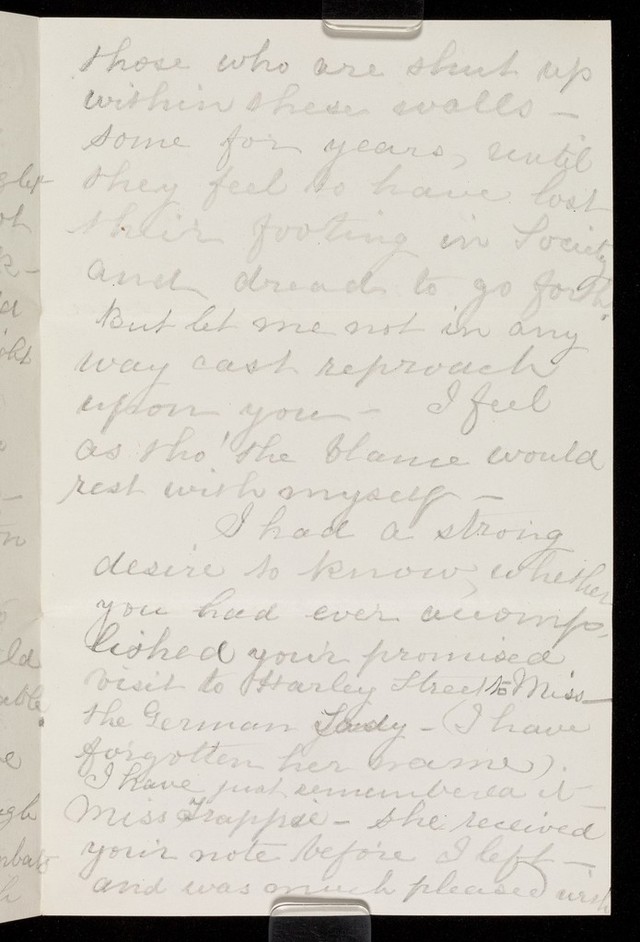 those who are shut up
within these walls –
some for years, until
they feel to have lost
their footing in Society
and dread to go forth.
But let me not in any
way cast reproach
upon you – I feel
as tho' the blame would
rest with myself –
I had a strong
desire to know, whether
you had ever accomp-
lished your promised
visit to Harley Street to Miss –
the German Lady – (I have
forgotten her name).
I have just remembered it –
Miss Trappie – she received
your note before I left –
and was much pleased with